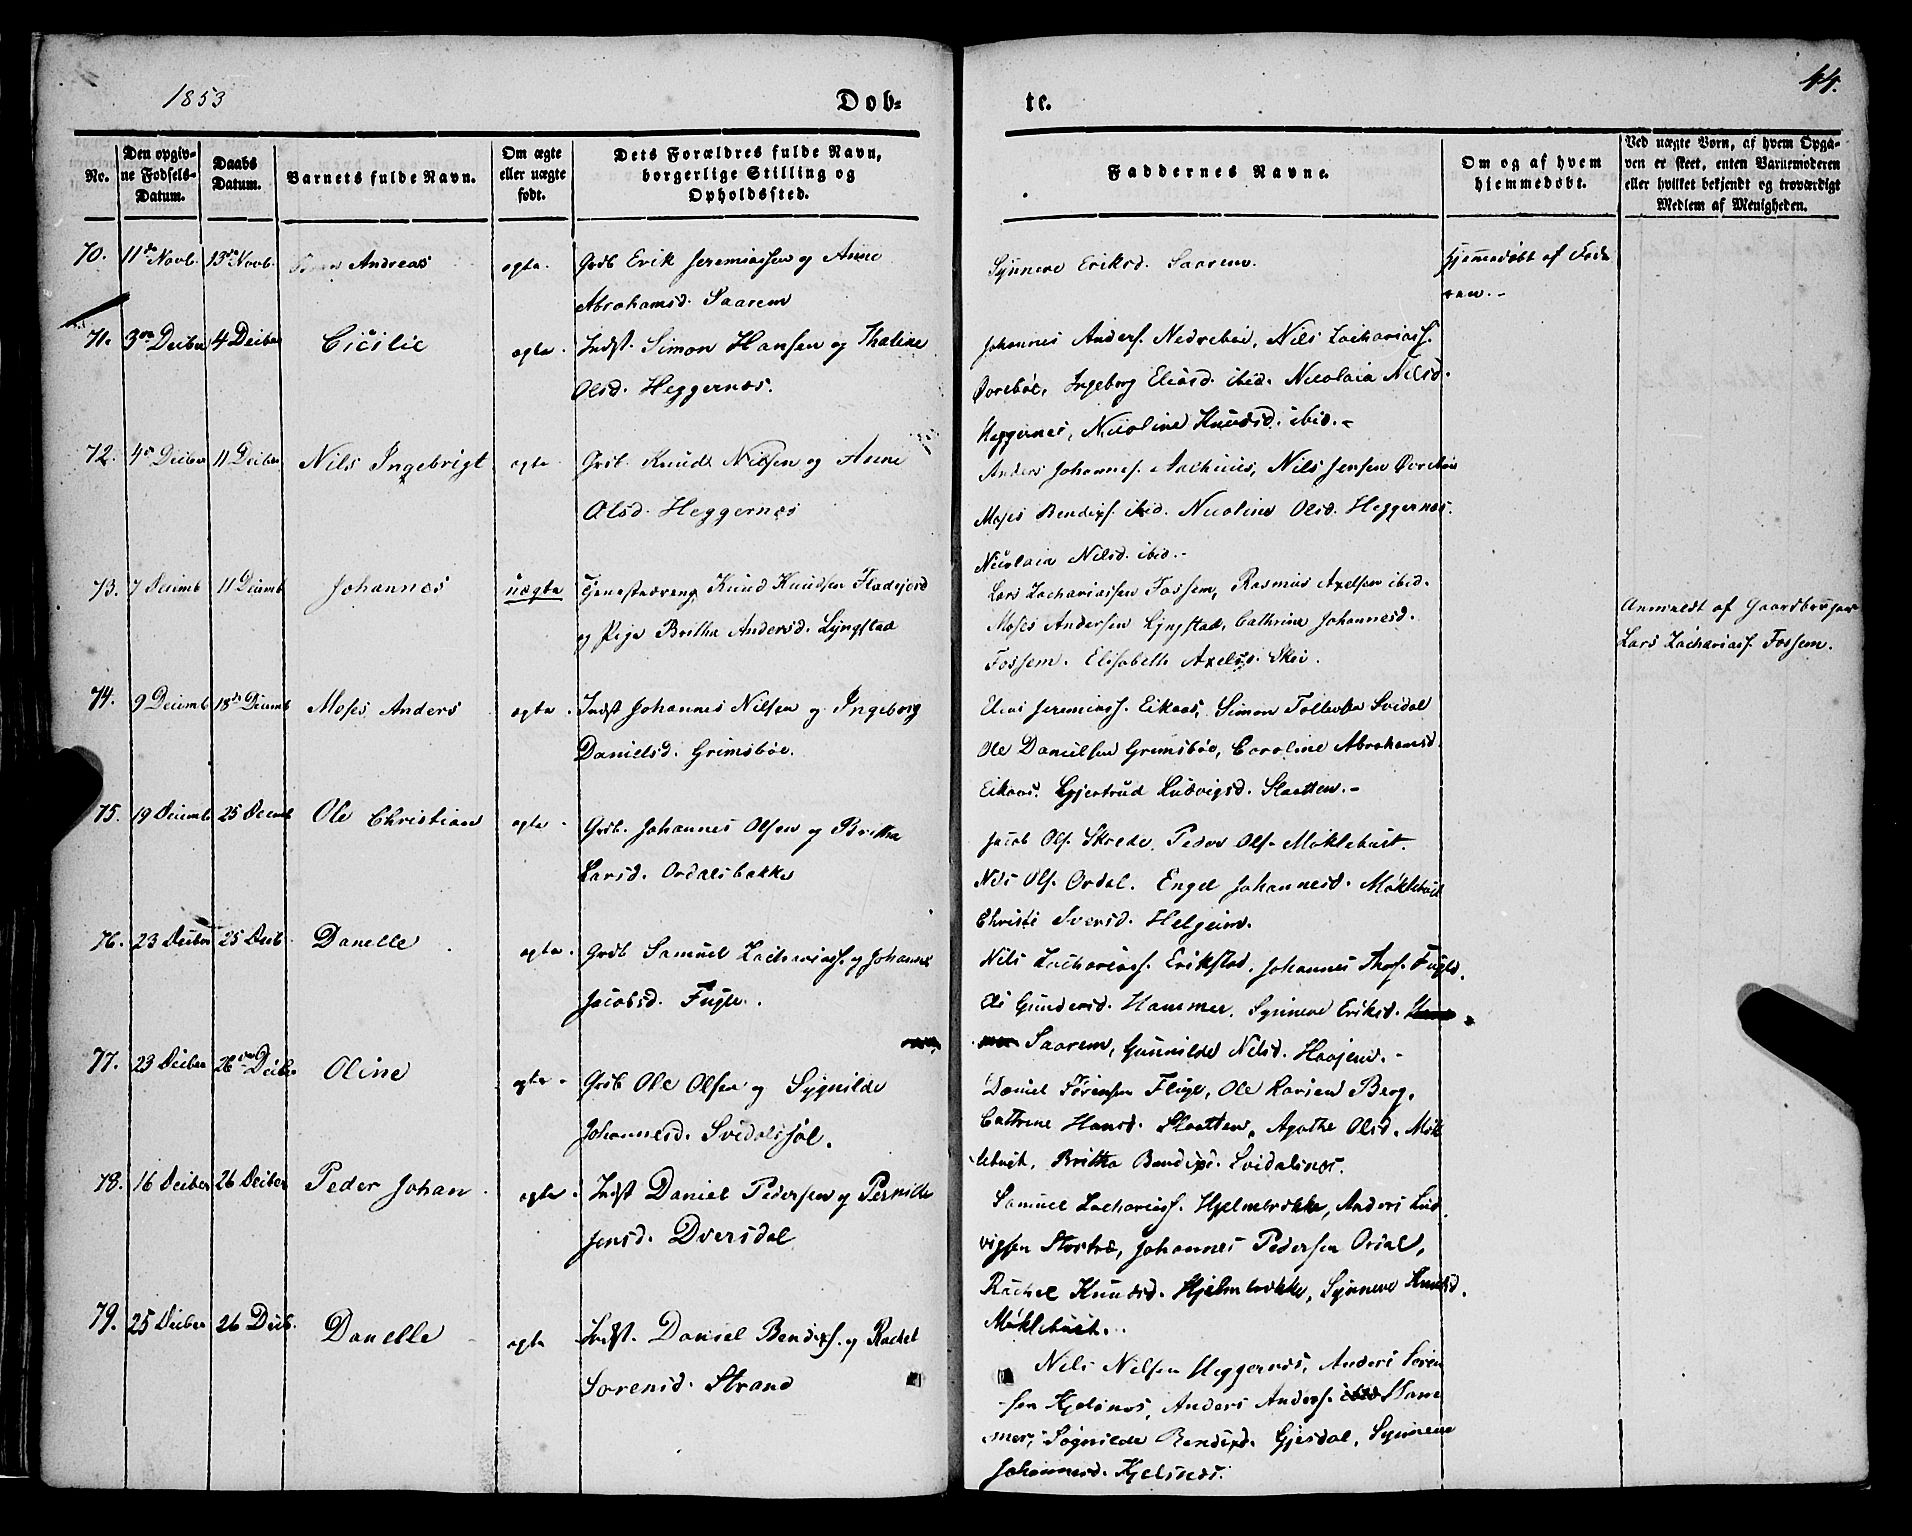 1853 Døb-
te. 44.
No. Den opgivne Fødsels-Datum. Daabs Datum. Barnets fulde Navn. Om ægte eller uægte født. Dets Forældres fulde Navn, borgerlige Stilling og Opholdssted.
Faddernes Navne. Om og af hvem hjemmedøbt. Ved uægte Børn, af hvem Opgaven er skeet, enten Barnemoderen eller hvilket bekjendt og troværdigt Medlem af Menigheden.
70. 11te Novb 13de Novb. Andreas ægte. Grdb Erik Jeremiassen og Anne
Abrahamsd. Saarem
Synneve Eriksd. Saarem. Hjemmedøbt af Fade
ren.-
71. 3die Decbr 4 Decber Cicilie ægte. Indst. Simon Hansen og Thaline
Olsd. Heggernæs.
Johannes Anders. Nedrebøe, Nils Zachariass.
Øvrebøe, Ingeborg Eliasd. ibid. Nicolaia Nilsd.
Heggernes, Nicoline Knudsd. ibid.-
72. 4de Decber 11 Decber Nils Ingebrigt ægte Grb. Knud Nilsen og Anne
Olsd. Heggernæs
Anders Johanness. Nils Jensen Øvrebøe
Moses Bendixs. ibid. Nicoline Olsd. Heggernæs.
Nicolaia Nilsd. ibid.-
73. 7 Decemb 11 Decemb Johannes uægte Tjenestedreng Knud Knudsen Fladefjord
og Pige Britha Andersd. Lyngstad
Lars Zachariassen Fossem, Rasmus Axelsen ibid.
Moses Andersen Lyngstad, Cathrine Johannesd.
Fossem. Elisabeth Axelsd. Skei.
Anmeldt af Gaardbruger
Lars Zachariass. Fossem.
74. 9 Decemb 18de Decemb Moses Anders ægte. Indst Johannes Nilsen og Ingeborg
Danielsd. Grimsbøe.
Elias Jeremiass. Eikaas, Simon Tollevsen Svidal
Ole Danielsen Grimsbøe, Caroline Abrahamsd.
Eikaas. Gjertrud Ludvigsd. Slaatten.-
75. 19 Decemb 25 Decemb Ole Christian ægte Grdb. Johannes Olsen og Britha
Larsd. Ordalsbakke
Jacob Ols. Skrede, Peder Ols. Møklebust.
Nils Ols. Ordal. Engel Johannesd. Møklebust
Christi Iversd. Helgeim.
76. 23 Decber 25 Decb. Danelle ægte. Grdb Samuel Zachariass. og Johanne
Jacobsd. Fugle.
Nils Zachariass. Erikstad, Johannes Thos. Fugle.
Eli Gundersd. Hammer, Synneve Eriksd.
Saarem, Gunnilde Nilsd. Haajem.-
77. 23 Decber 26 Decbr Oline ægte Grdb Ole Olsen og Sygnilde
Johannesd. Svidalsfol.
Daniel Sørensen Fluge, Ole Larsen Berg,
Cathrine Hansd. Slaatten, Agathe Olsd. Møk
lebust, Britha Bendixd. Svidalsnæs.
78. 16 Decber 26 Decber Peder Johan ægte Indst Daniel Pedersen og Pernille
Jensd. Dversdal
Samuel Zachariass. Hjelmbrekke, Anders Lud
vigsen Stostræ, Johannes Pedersen Ordal,
Rachel Knudsd. Hjelmbrekke, Synneve Knudsd.
Møklebust.
79. 25 Decber 26 Decb. Danelle ægte Indst. Daniel Bendixs. og Rachel
Sorensd. Strand
Nils Nilsen Heggernæs, Anders Søren
sen Kjelsnæs, Anders Anders. Ham
mer, Sygnilde Bendixd. Gjesdal, Synneve
Johannesd. Kjelsnæs.